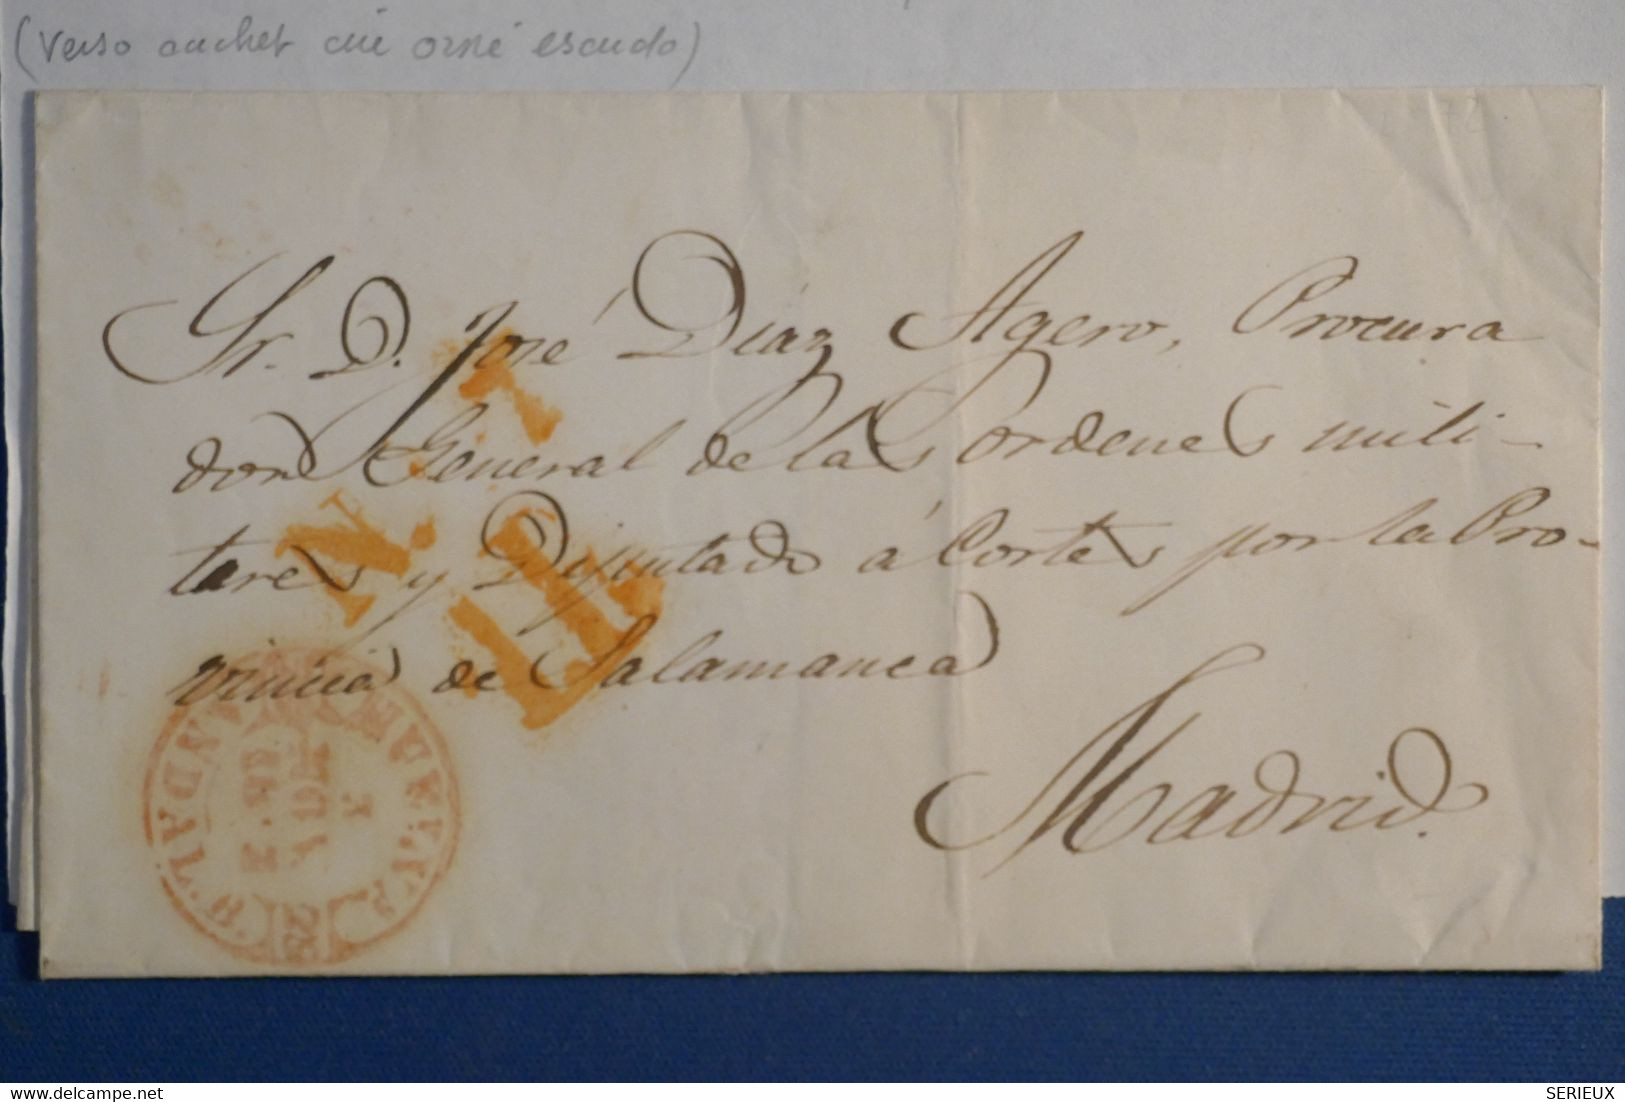 (Verso cachet cire orné escudo)
Sr. D. José Díaz Agero, Procura
dor General de las Ordenes mili-
tares y Diputado á Cortes por la Pro-
vincia de Salamanca
Madrid.
delcampe.net
SERIEUX